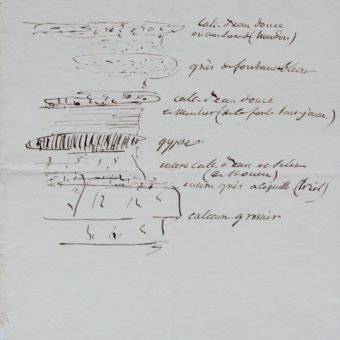 calc. d'eau douce
ou meuliere d (Meudon)
grès de fontainebleau
calc. d'eau douce
et Meulier (de la ferté sous-jouarre)
gypse
calc. d'eau et silex
marin grès a coquille (triel)
calcaire grossier